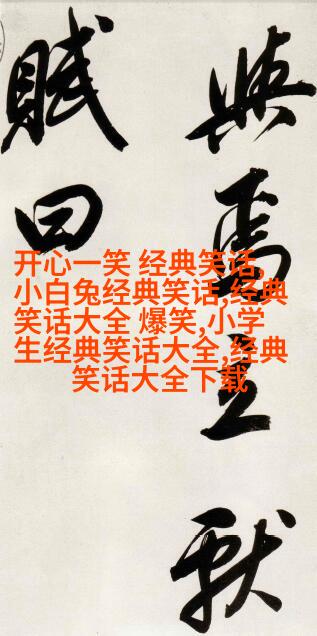 與焉
賦曰
开心一笑 经典笑话,
小白兔经典笑话,经典
笑话大全 爆笑,小学
生经典笑话大全,经典
笑话大全下载